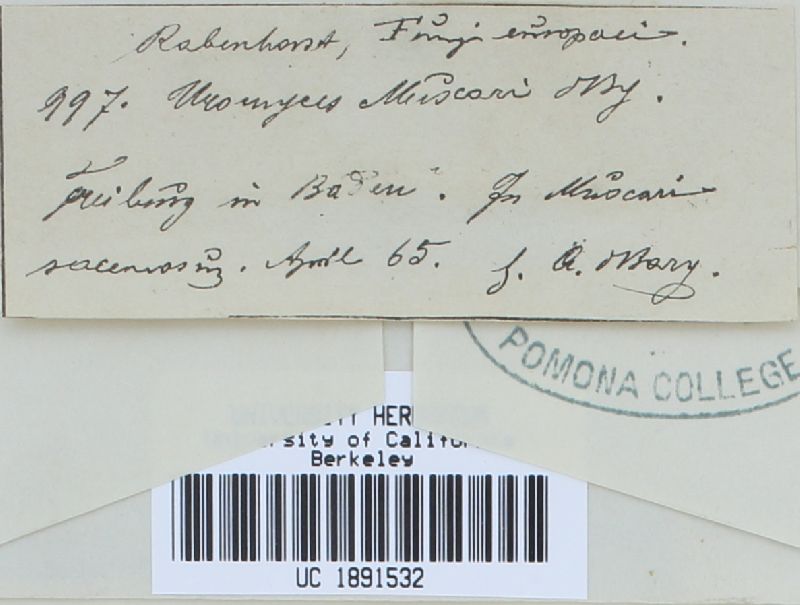 Rabenhorst, Fungi europaei.
997. Uromyces Muscari dBy.
Freiburg in Baden. In Muscari
racemosum. April 65. l. A. dBary.
POMONA COLLEGE
HER
rsity of Califor
Berkeley
UC 1891532